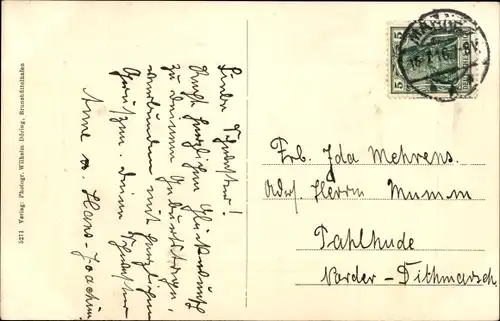 Liebe Schwester!
Recht herzlichen Glückwunsch
zu Deinem Geburtstage,
verbunden mit herzlichen
Grüßen. Deine Schwester
Anne u. Hans-Joachim
5271 Verlag: Photogr. Wilhelm Döring, Brunsbüttelhafen
5
5
16.2.16
Frl. Ida Mehrens
Adr. Herrn Mumm
Pahlhude
Norder-Dithmarsch.